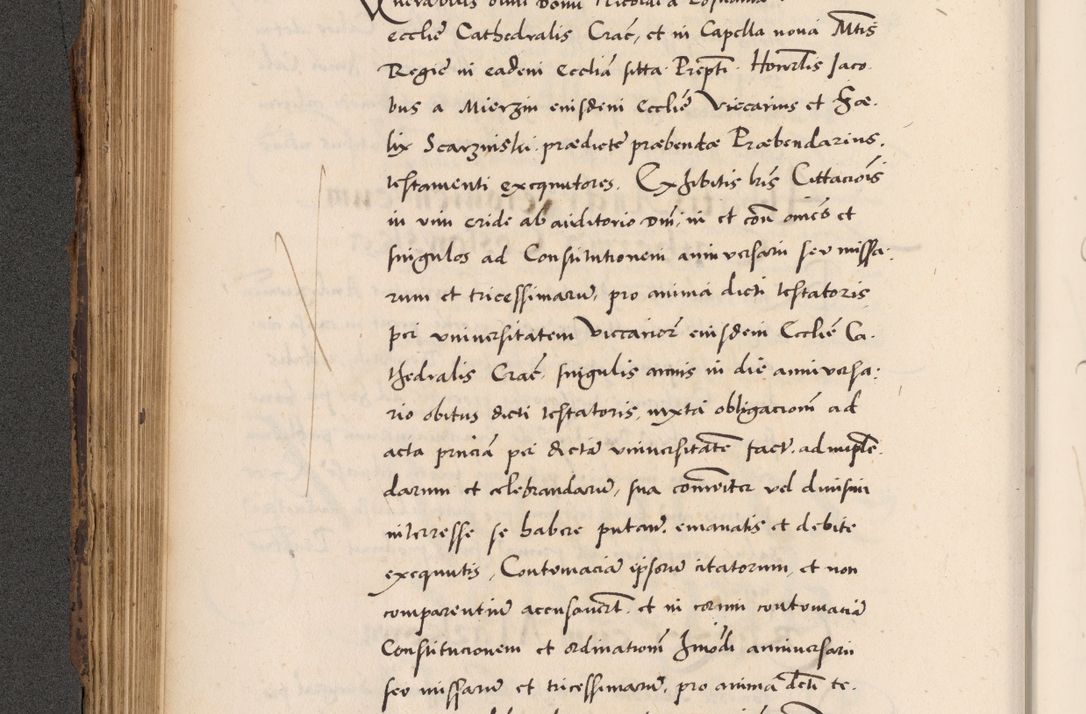 ecclie Cathedralis Crac, et in Capella nova Mtis
Regie in eadem Ecclia sitta Prepti. Honrlis Jaco
bus a Mierzin eiusdem Ecclie Viccarius et Foe.
lix Scarzinski. prædicte præbendæ Præbendarius.
testamenti exequutores. Exhibitis lris Cittaciois
in vim eride ab auditorio dni, in et con omes et
singulos ad Constitutionem anniversarii sev missa:
rum et tricessimarum, pro anima dicti testatoris
per universitatem Viccarior eiusdem Ecclie Ca.
thedralis Crac. singulis annis in die anniversa:
rio obitus dicti testatoris, iuxta obligaciom ad
acta pncia per dicta universitate fact. ad imple.
darum et celebrandaru, sua comuniter vel divisim
interesse se habere putan. emanatis et debite
exequutis, Contumacia ipsoru citatorum, et non
comparentiu accusavert. et in eorum contumatia
Constitucionem et ordinationi hmodi anniversarii
sev missaru et tricessimaru, pro anima dcti te.